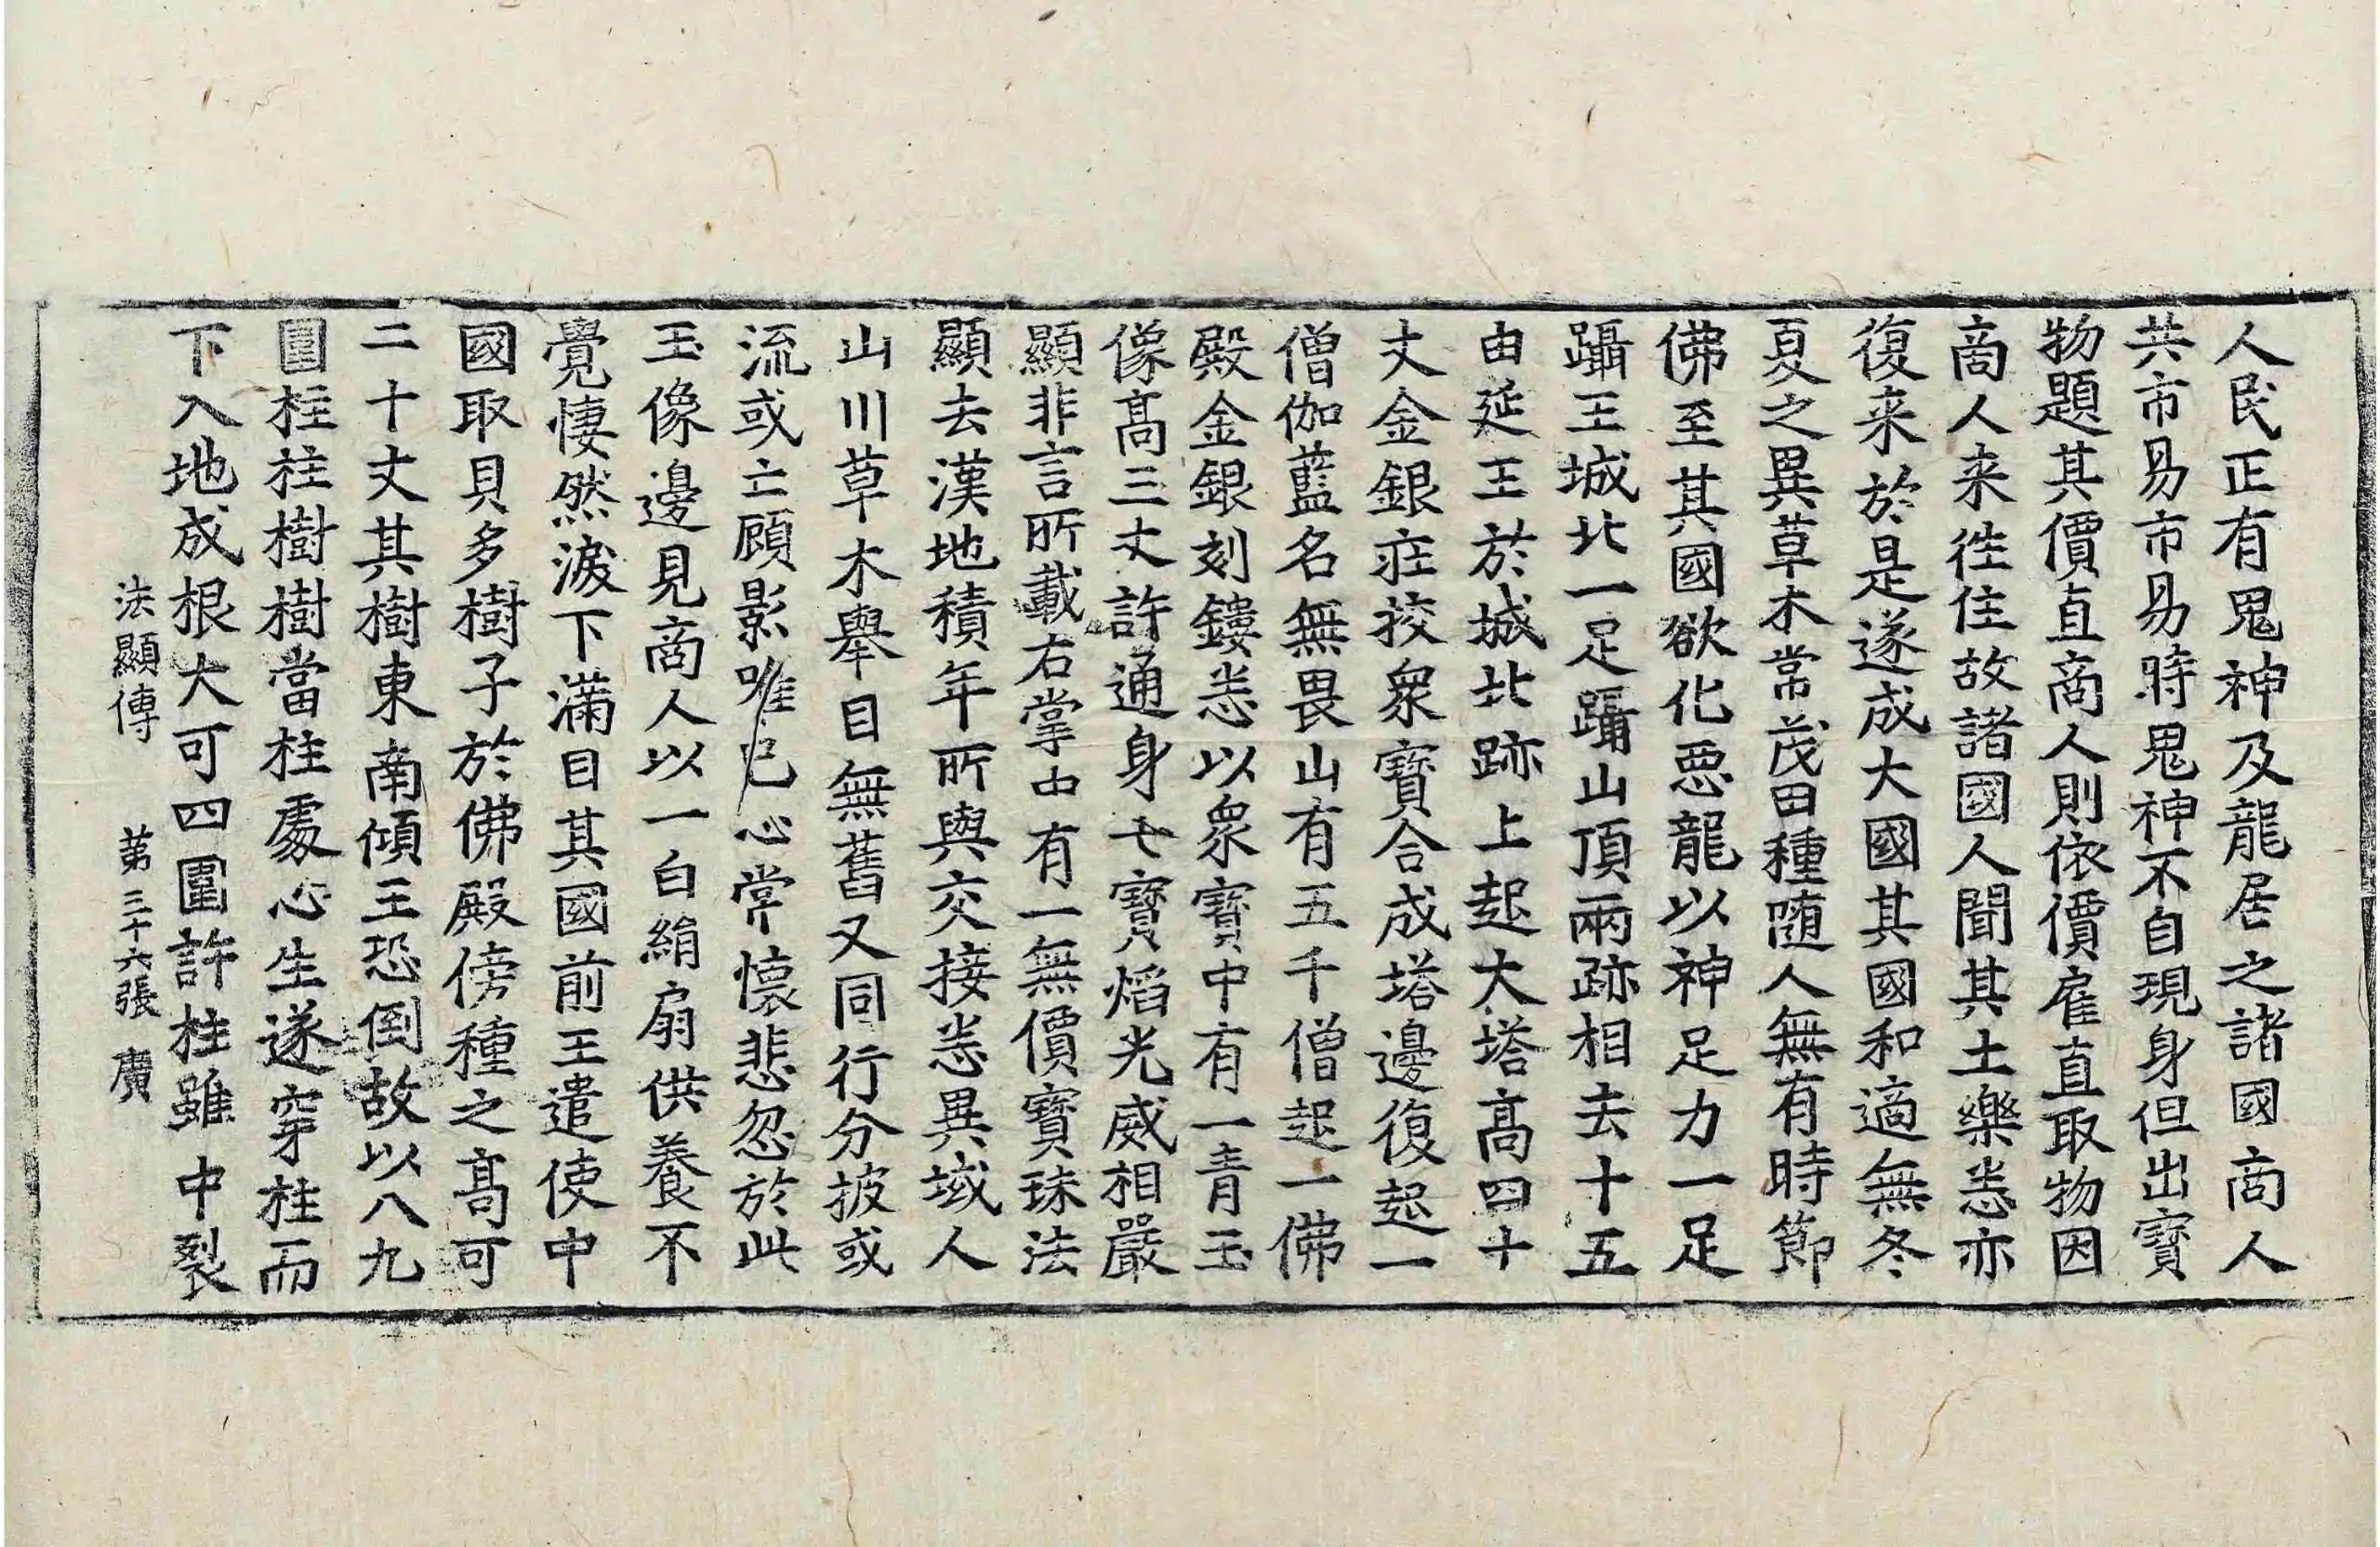 人民正有鬼神及龍居之諸國商人
共市易市易時鬼神不自現身但出寶
物題其價直商人則依價雇直取物因
商人来往住故諸國人聞其土樂悉亦
復来於是遂成大國其國和適無冬
夏之異草木常茂田種随人無有時節
佛至其國欲化悪龍以神足力一足
躡王城北一足躡山頂兩跡相去十五
由延王於城北跡上起大塔高四十
丈金銀莊挍衆寶合成塔邊復起一
僧伽藍名無畏山有五千僧起一佛
殿金銀刻鏤悉以衆寶中有一青玉
像髙三丈許通身七寶焰光威相嚴
顯非言所載右掌中有一無價寶珠法
顯去漢地積年所與交接悉異域人
山川草木舉目無舊又同行分披或
流或亡顧影唯己心常懷悲忽於此
玉像邊見商人以一白絹扇供養不
覺悽然淚下滿目其國前王遣使中
國取貝多樹子於佛殿傍種之髙可
二十丈其樹東南傾王恐倒故以八九
圍柱拄樹樹當柱處心生遂穿柱而
下入地成根大可四圍許柱雖中裂
法顯傳 第三十六張 廣